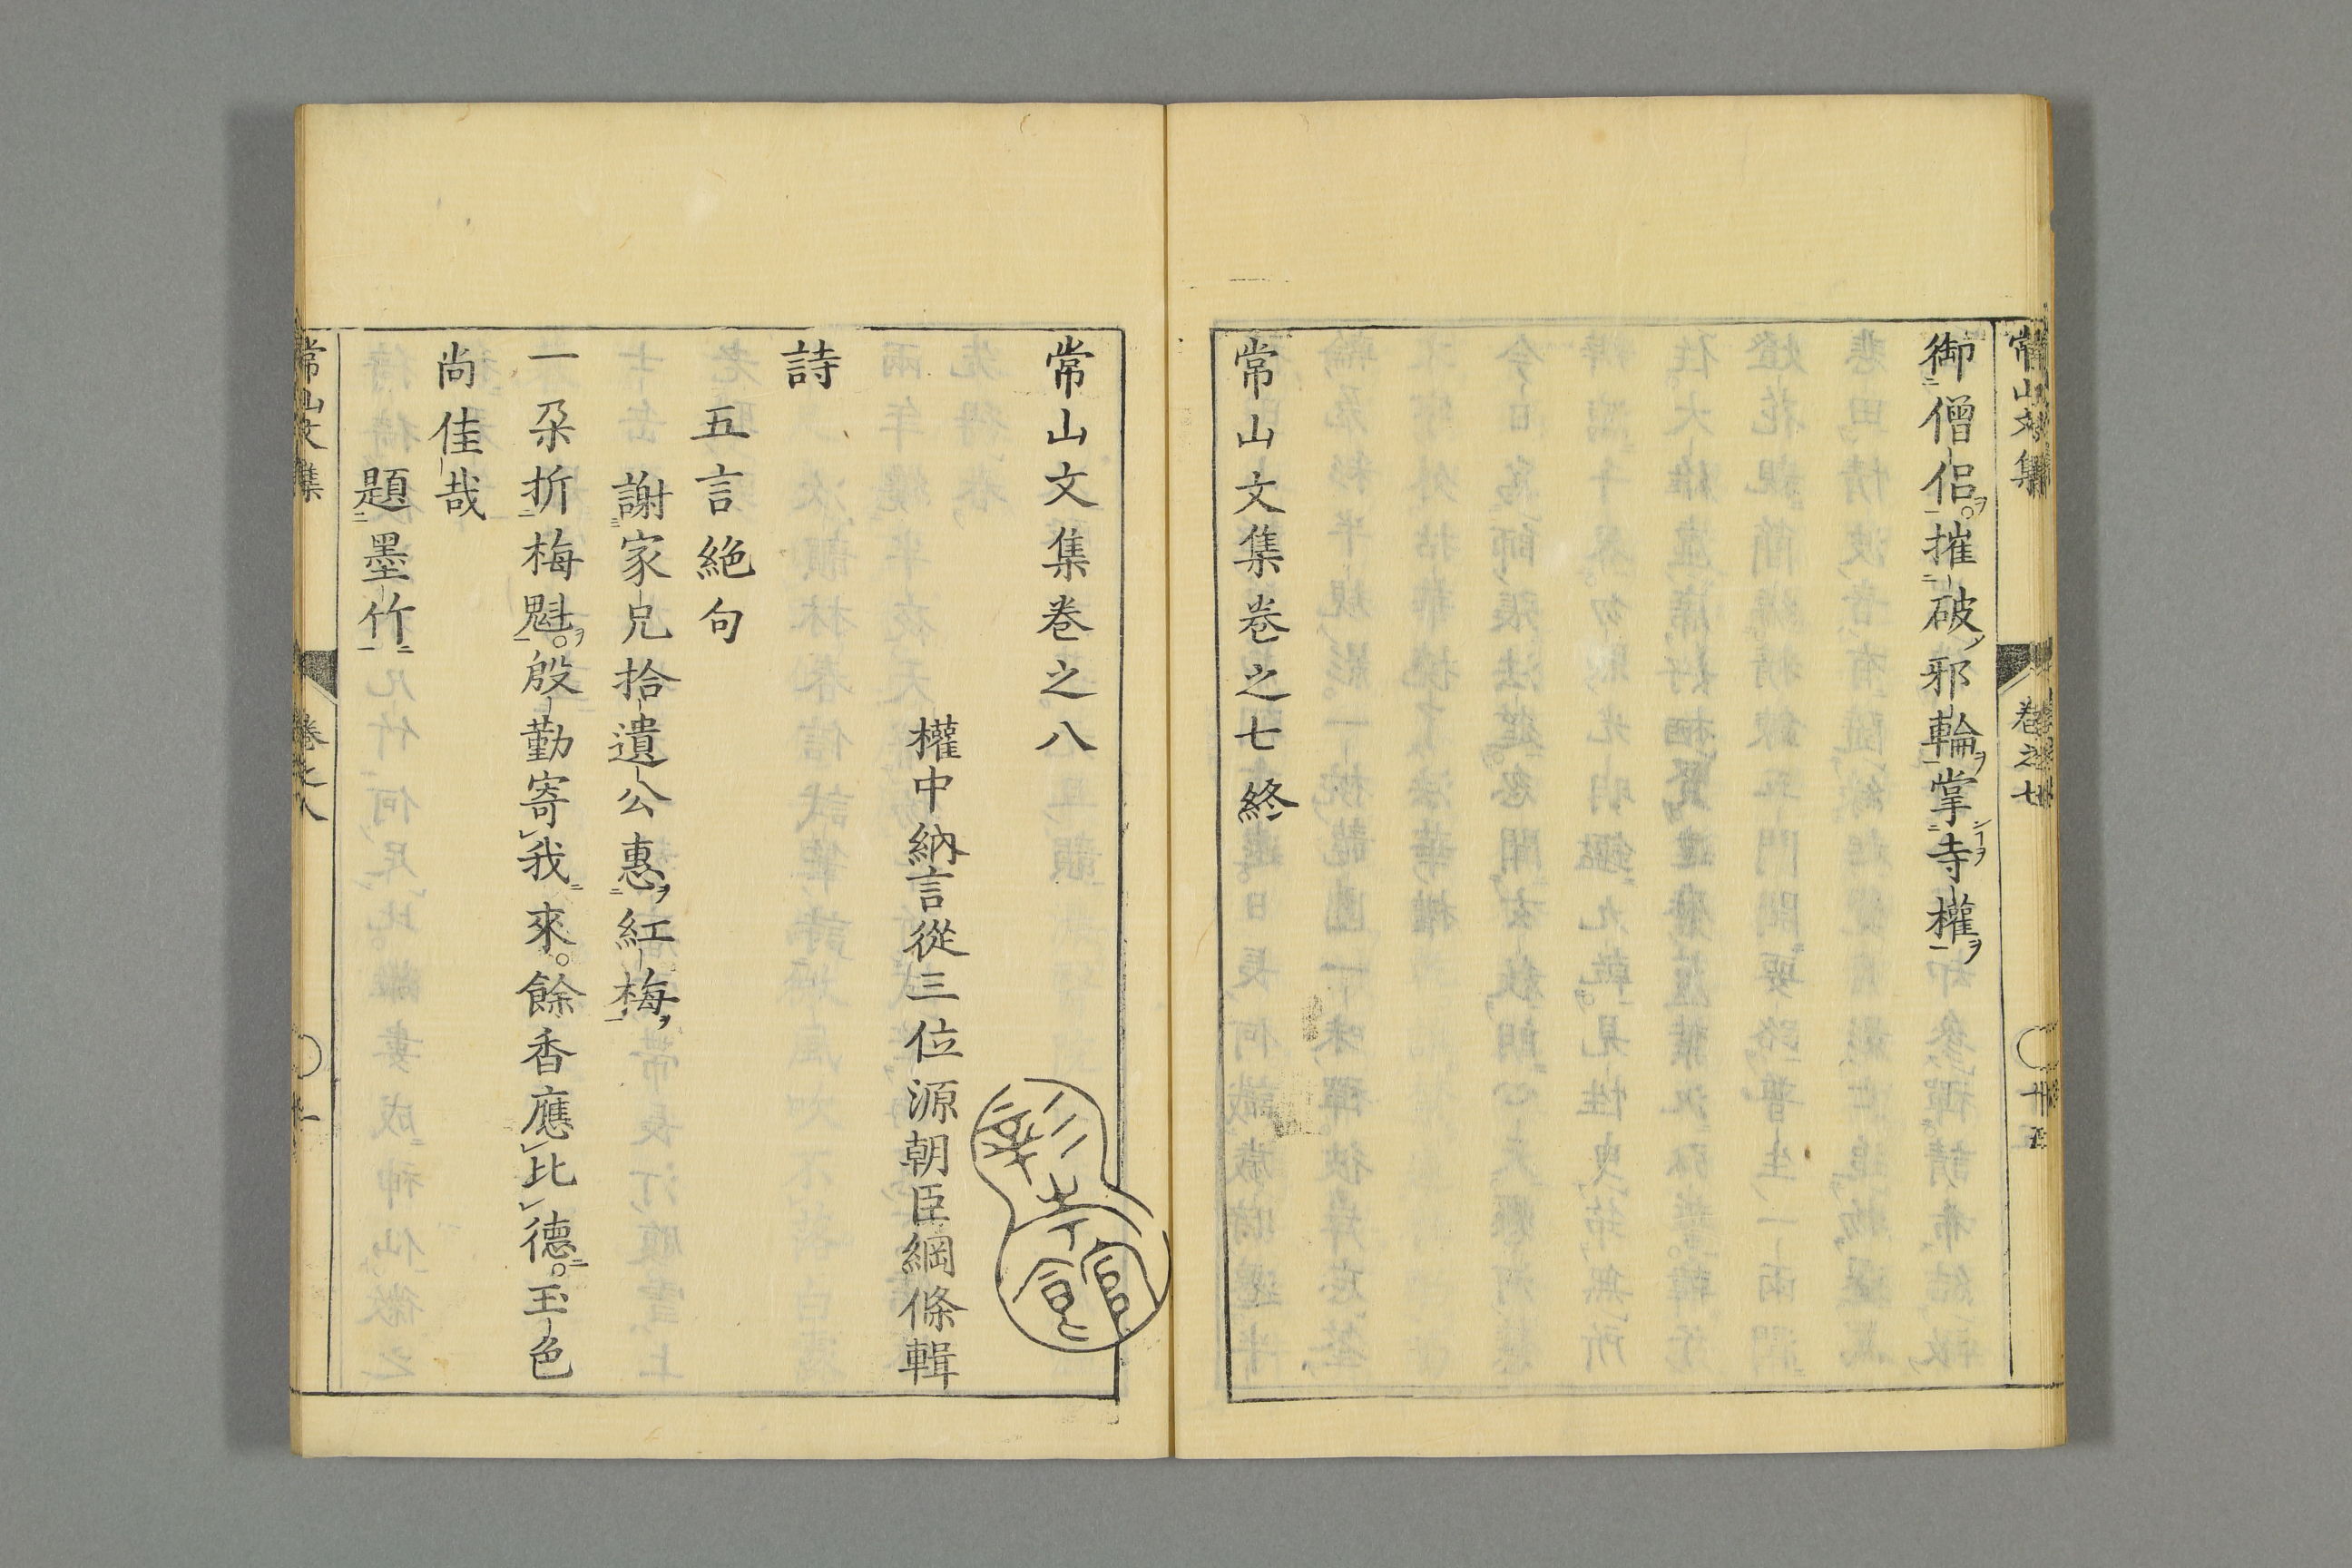 常山文集
卷之七
十五
御僧侶ヲ。摧破ノ邪輪ヲ掌寺權ヲ
常山文集卷之七終
常山文集卷之八
權中納言從三位源朝臣綱條輯
彰考館
詩
五言絶句
謝家兄拾遺公惠ヲ紅梅ヲ
一朶折梅魁ヲ。殷勤寄我來。餘香應比德。玉色
尚佳哉
題墨竹
常山文集
卷之八